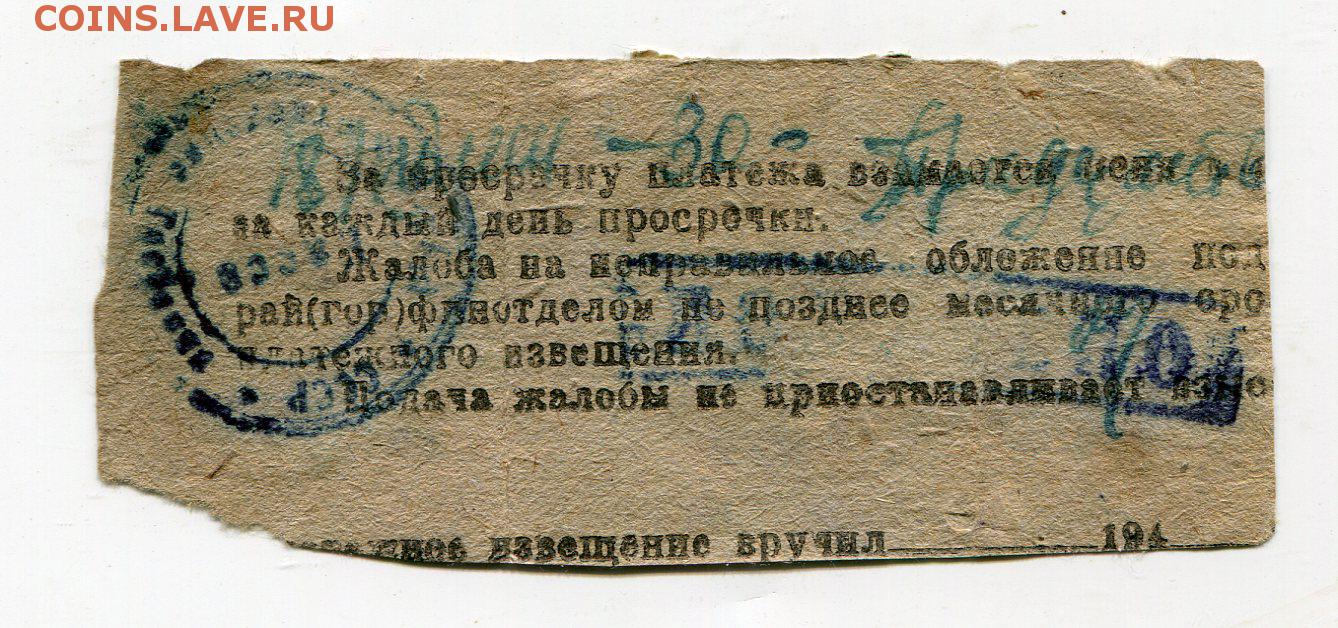 COINS.LAVE.RU
18 -30-
За просрочку платежа взимается пеня
за каждый день просрочки.
Жалоба на неправильное обложение под
рай(гор)финотделом не позднее месячного сро
платежного извещения.
Подача жалобы не приостанавливает взыс
извещение вручил 194